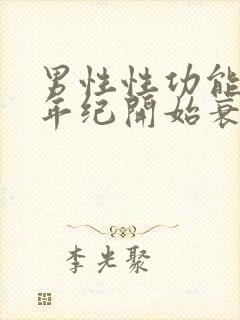 男性性功能
年纪開始衰
李光聚